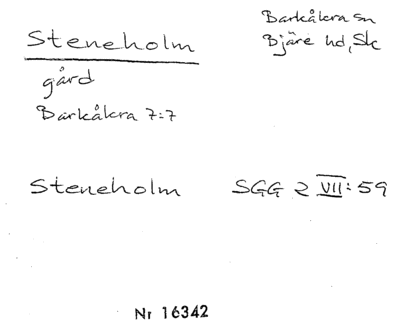 Steneholm
Barkåkra sn
Bjäre hd, Sk
gård
Barkåkra 7:7
Steneholm SGG 2 VII: 59
Nr 16342